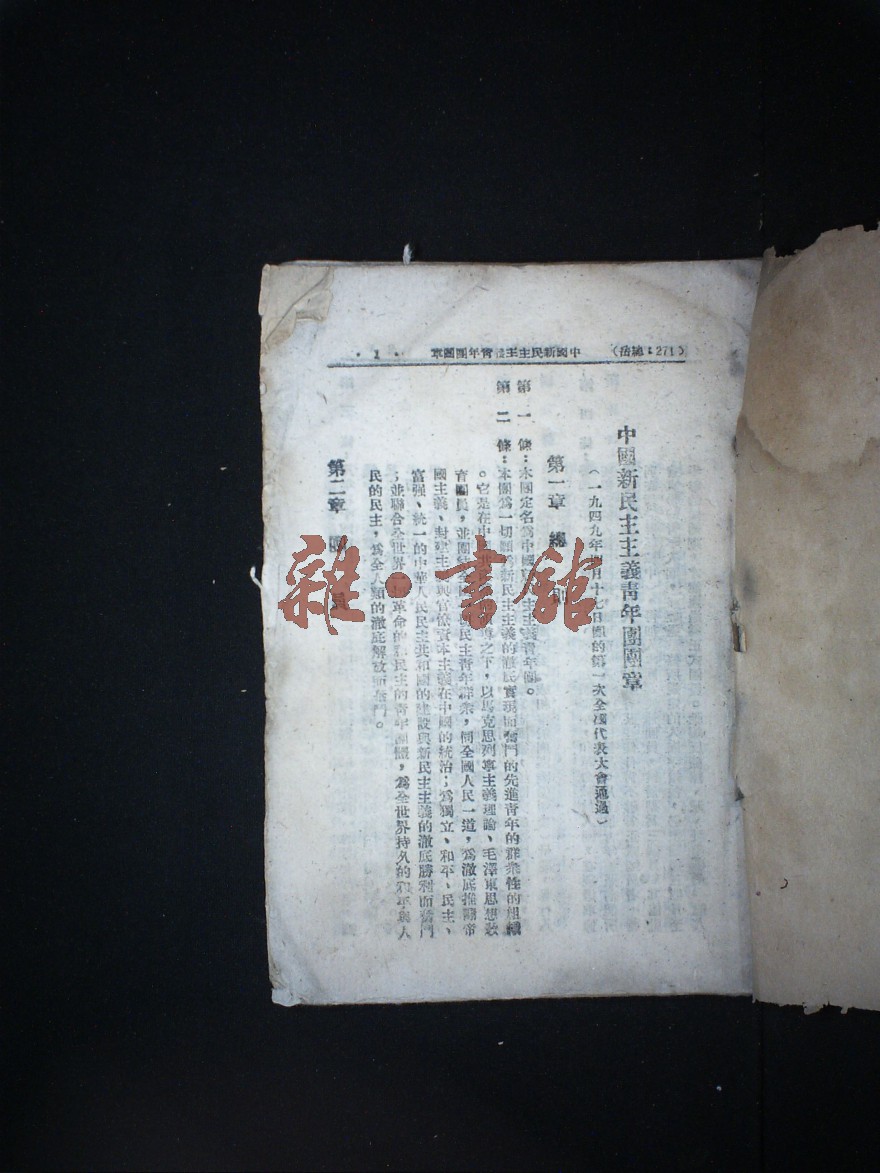 (271：總岳)　中國新民主主義青年團團章　·1·
中國新民主主義青年團團章
(一九四九年四月十七日團的第一次全國代表大會通過)
第一章　總則
第一條：本團定名為中國新民主主義青年團。
第二條：本團為一切願為新民主主義的澈底實現而奮鬥的先進青年的群衆性的組織
。它是在中國共產黨領導之下，以馬克思列寧主義理論、毛澤東思想敎
育團員，並團結全國新民主青年群衆，同全國人民一道，為澈底推翻帝
國主義、封建主義與官僚資本主義在中國的統治；為獨立、和平、民主、
富强、統一的中華人民民主共和國的建設與新民主主義的澈底勝利而奮鬥
；並聯合全世界一切革命的與民主的青年團體，為全世界持久的和平與人
民的民主，為全人類的澈底解放而奮鬥。
第二章　團員
雜·書館